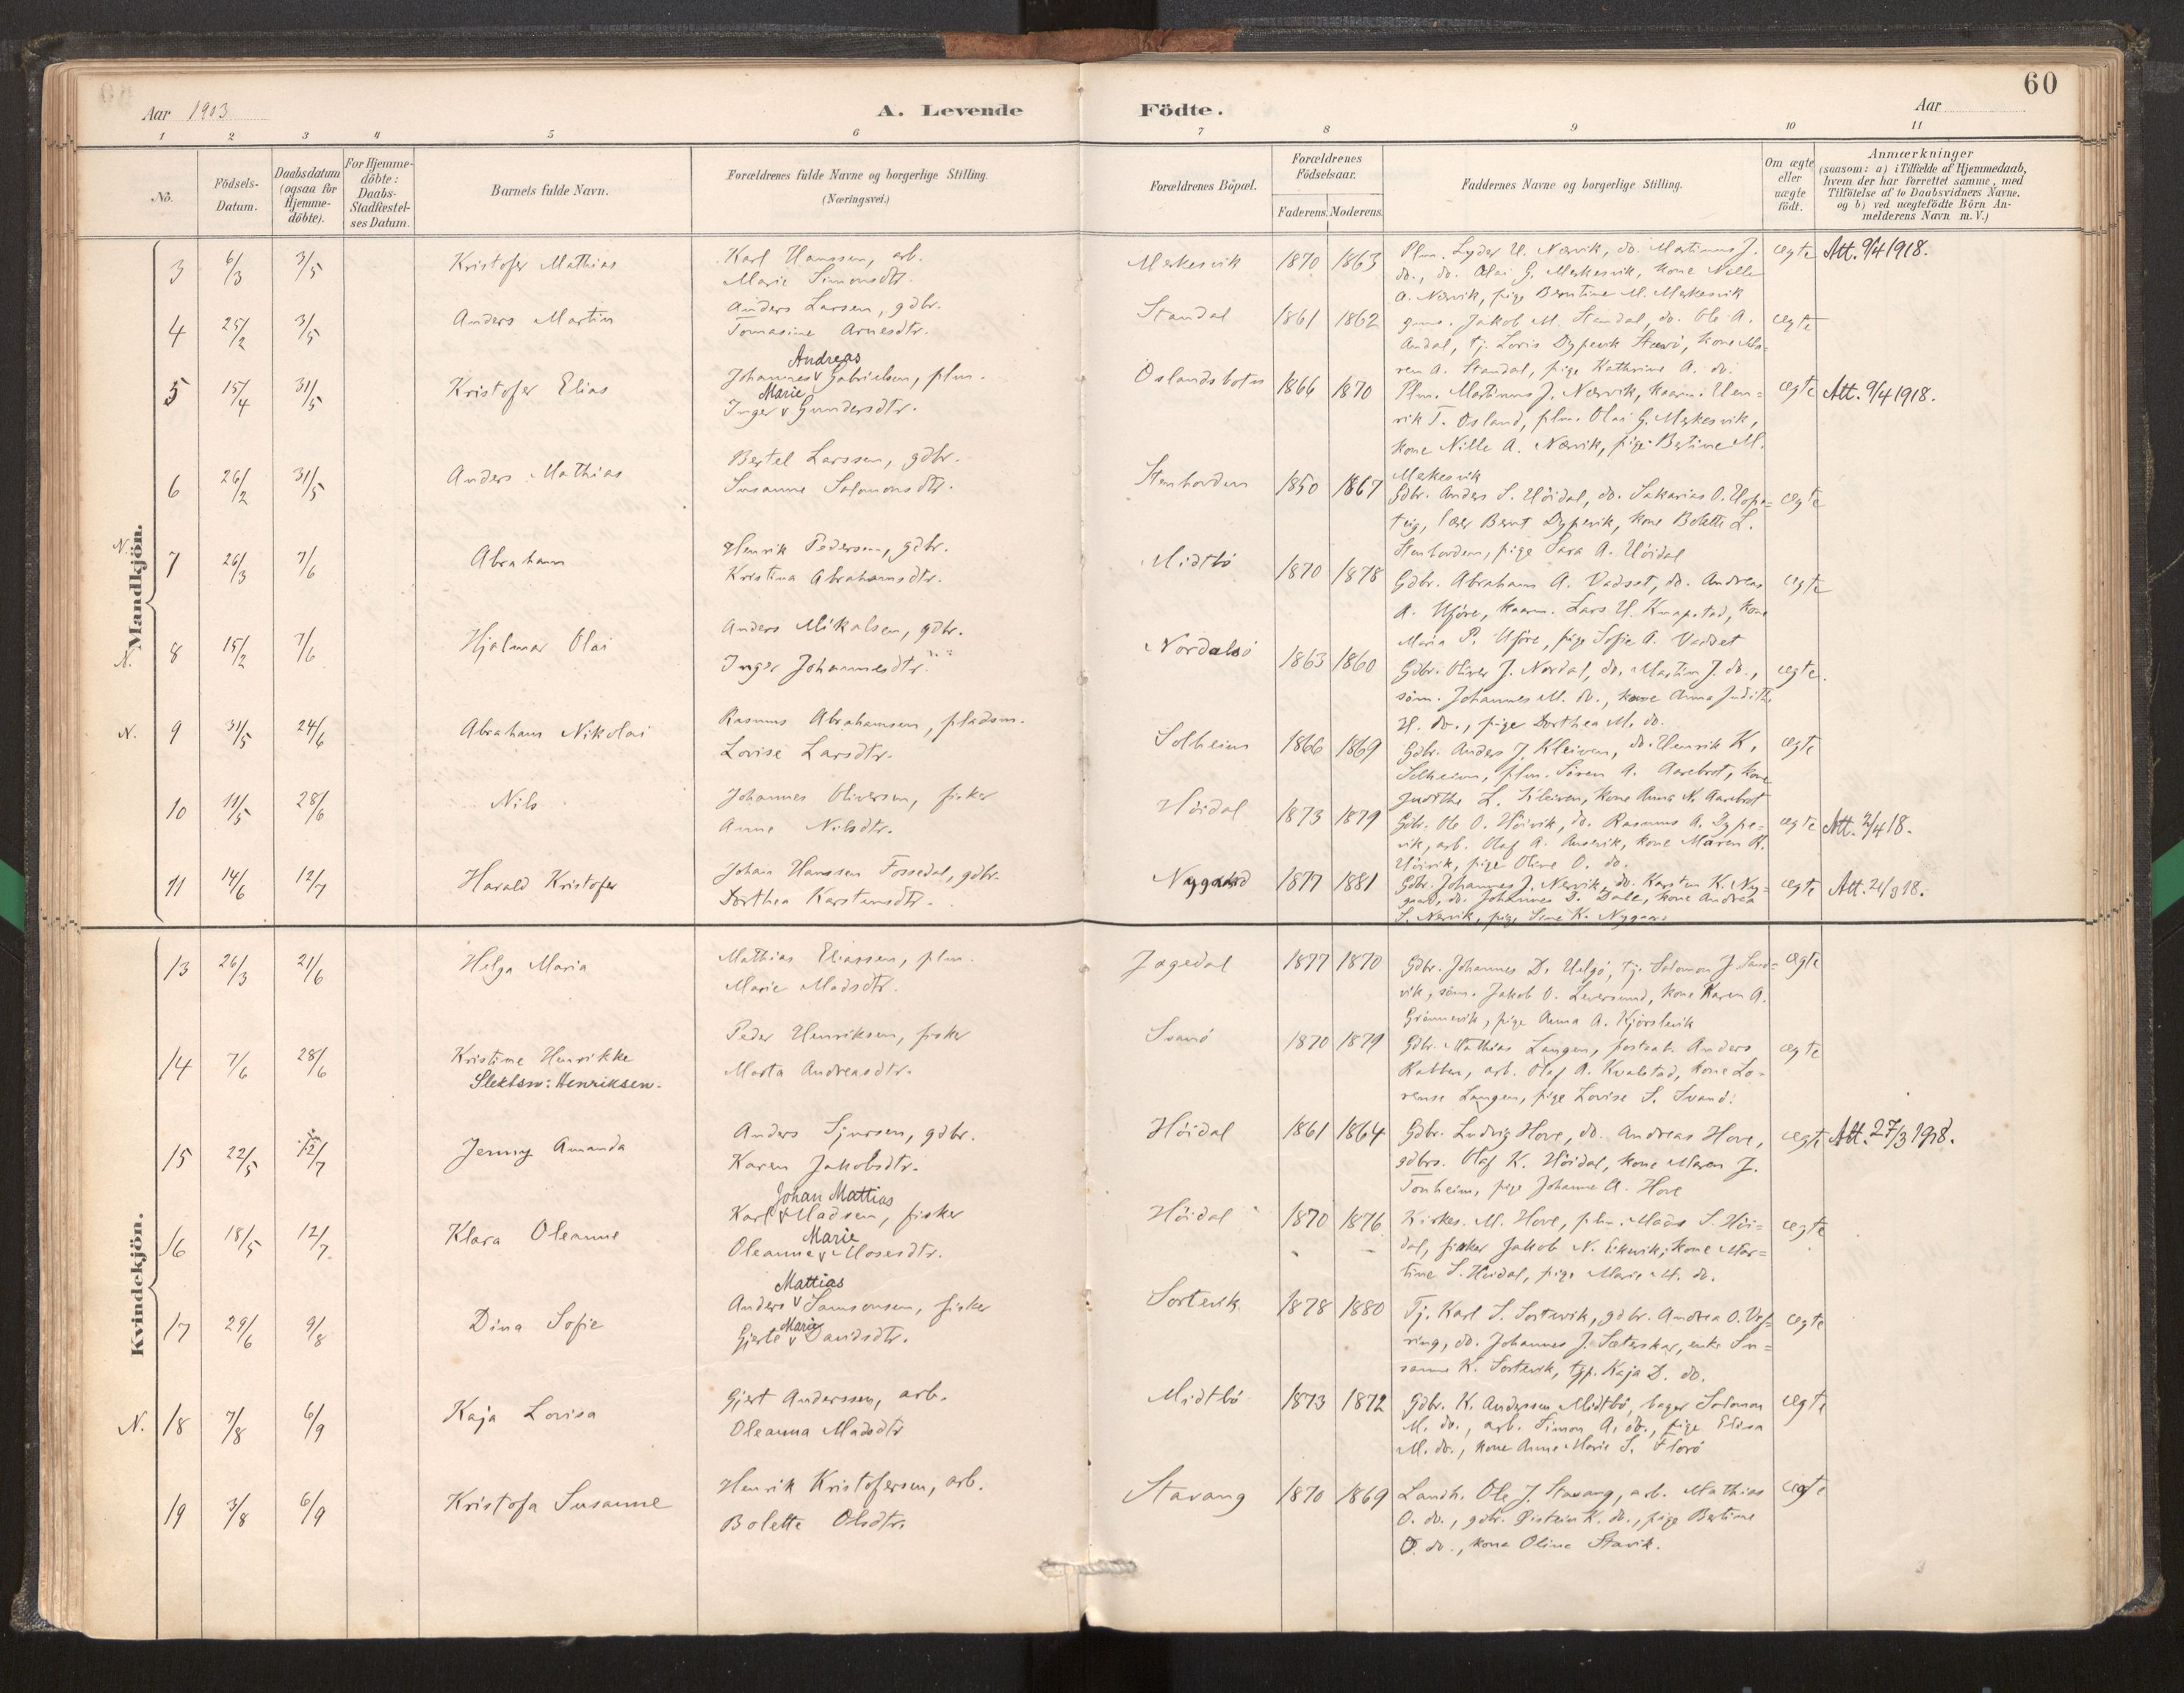 60
Aar 1903
A. Levende Födte.
Aar
1 2 3 4 5 6 7 8 9 10 11
No.
Födsels-Datum.
Daabsdatum (ogsaa for Hjemme-döbte).
For Hjemme-döbte: Daabs-Stadfæstel-ses Datum.
Barnets fulde Navn.
Forældrenes fulde Navne og borgerlige Stilling. (Næringsvei.)
Forældrenes Böpæl.
Forældrenes Födselsaar.
Faderens. Moderens.
Faddernes Navne og borgerlige Stilling.
Om ægte eller uægte födt.
Anmærkninger
(saasom: a) i Tilfælde af Hjemmedaab,
hvem der har forrettet samme, med
Tilföielse af to Daabsvidners Navne.
og b) ved uægtefödte Börn An-
melderens Navn m. V.)
Mandkjön.
3 6/3 3/5 Kristofer Mathias
Karl Hanssen, arb.
Marie Simonsdtr.
Merkesvik 1870 1863
Plm. Lyder H. Nærvik, do. Martinus J.
do., do. Olai G. Merkesvik, kone Nille
A. Nærvik, pige Berntine M. Merkesvik
ægte Att. 9/4 1918.
4 25/2 3/5 Anders Martin
Anders Larsen, gdbr.
Tomasine Arnesdtr.
Standal 1861 1862
Jakob M. Standal, do. Ole A.
Andal, tj. Loris Dypevik Stavö, kone Ma=
ren A. Standal, pige Kathrine A. do.
ægte
5 15/4 31/5 Kristofer Elias
Andreas
Johannes v Gabrielsen, plm.
Marie
Inger v Gundersdtr.
Oslandsbotn 1866 1870
Plm. Martinus J. Nærvik, kaarm. Hen=
rik T. Osland, plm. Olai G. Merkesvik,
kone Nille A. Nærvik, pige Bertine M.
Merkesvik
ægte Att. 9/4 1918.
6 26/2 31/5 Anders Mathias
Bertel Larssen, gdbr.
Susanne Salomonsdtr.
Stenhovden 1850 1867
Gdbr. Anders S. Höidal, do. Sakarias O. Hope=
teig, lærer Bernt Dypevik, kone Bolette L.
Stenhovden, pige Sara A. Höidal
ægte
N. 7 26/3 7/6 Abraham
Henrik Pedersen, gdbr.
Kristina Abrahamsdtr.
Midtbö 1870 1878
Gdbr. Abraham A. Vadset, do. Andreas
A. Ufjöre, kaarm. Lars H. Knapstad, kone
Maria P. Ufjöre, pige Sofie A. Vadset
ægte
N. 8 15/2 7/6 Hjalmar Olai
Anders Mikalsen, gdbr.
Inger Johannesdtr.
Nordalsö 1863 1860
Gdbr. Oliver J. Nordal, do. Martin J. do.,
söm. Johannes M. do., kone Anna Judith
H. do., pige Dorthea M. do.
ægte.
N. 9 31/5 24/6 Abraham Nikolai
Rasmus Abrahamsen, pladsm.
Lovise Larsdtr.
Solheim 1866 1869
Gdbr. Anders J. Kleiven, do. Henrik K.
Solheim, plm. Sören A. Aarebrot, kone
Judithe L. Kleiven, kone Anna N. Aarebrot
ægte
10 11/5 28/6 Nils
Johannes Oliversen, fisker
Anne Nilsdtr.
Höidal 1873 1879
Gdbr. Ole O. Höivik, do. Rasmus A. Dype=
vik, arb. Olaf A. Ausevik, kone Maren R.
Höivik, pige Oline O. do.
ægte Att. 2/4 18.
11 14/6 12/7 Harald Kristofer
Johan Hanssen Fossedal, gdbr.
Dorthea Karstensdtr.
Nygaard 1877 1881
Gdbr. Johannes J. Nærvik, do. Karsten K. Ny=
gaard, do. Johannes D. Dale, kone Andrea
S. Nærvik, pige Sine K. Nygaard
ægte Att. 21/3 18.
Kvindekjön.
13 26/3 21/6 Helga Maria
Mathias Eliassen, plm.
Marie Madsdtr.
Jagedal 1877 1870
Gdbr. Johannes D. Helgö, tj. Salomon J. Sand=
vik, söm. Jakob O. Leversund, kone Karen A.
Grönnevik, pige Anna A. Kjörslevik
ægte
14 7/6 28/6 Kristine Henrikke
Slektsn: Henriksen.
Peder Henriksen, fisker
Marta Andreasdtr.
Svanö 1870 1879
Gdbr. Mathias Langen, postaab. Anders
Rabben, arb. Olaf A. Kvalstad, kone Lo=
rense Langen, pige Lovise S. Svanö.
ægte
15 22/5 12/7 Jenny Amanda
Anders Sjursen, gdbr.
Karen Jakobsdtr.
Höidal 1861 1864
Gdbr. Ludvig Hove, do. Andreas Hove,
gdbrs. Olaf K. Höidal, kone Maren J.
Tonheim, pige Johanne A. Hove
ægte Att. 27/3 1918.
16 18/5 12/7 Klara Oleanne
Johan Mattias
Karl v Madsen, fisker
Marie
Oleanne v Mosesdtr.
Höidal 1870 1876
Kirkes. M. Hove, plm. Mads S. Höi=
dal, fisker Jakob N. Eikvik, kone Mar=
tine S. Höidal, pige Marie M. do.
ægte
17 29/6 9/8 Dina Sofie
Mattias
Anders v Samsonsen, fisker
Marie
Gjerte v Davidsdtr.
Sortevik 1878 1880
Tj. Karl S. Sortevik, gdbr. Andrea O. Vef=
ring, do. Johannes J. Sæterskar, enke Su=
sanne K. Sortevik, tjp. Kaja D. do.
ægte
N. 18 7/8 6/9 Kaja Lovisa
Gjert Anderssen, arb.
Oleanna Madsdtr
Midtbö 1873 1872
Gdbr. K. Anderssen Midtbö, bager Salomon
M. do., arb. Simon A. do., pige Elisa
M. do., kone Anne Marie S. Florö
ægte
19 3/8 6/9 Kristofa Susanne
Henrik Kristofersen, arb.
Bolette Olsdtr.
Stavang 1870 1869
Landh. Ole J. Stavang, arb. Mathias
O. do., gdbr. Øistein K. do., pige Bertine
O. do., kone Oline Stavik.
ægte